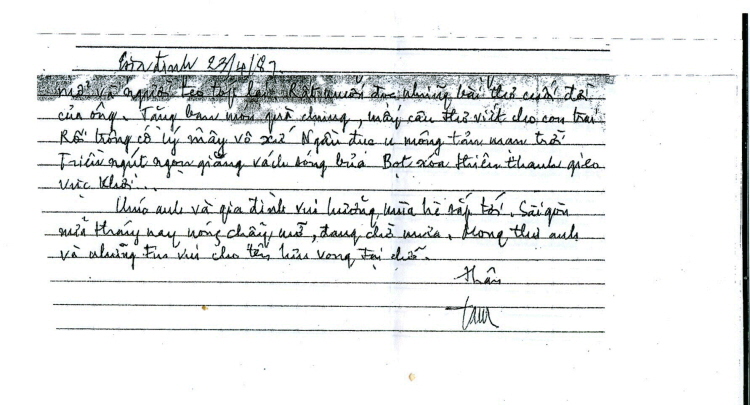 Gia định 23/4/87.
mở và người teo tóp lại. Rất muốn đọc những bài thơ cuối đời
của ông. Tặng bạn món quà chung, mấy câu thơ viết cho con trai
Rồi trông cố lý mây vô xứ Ngẩn đục u mông tản man trời
Triền ngút ngọn giăng vách sóng bủa Bọt xóa thiên thanh gieo
vực khơi...
Chúc anh và gia đình vui hưởng mùa hè sắp tới. Sàigòn
mấy tháng nay nóng chảy mỡ, đang chờ mưa. Mong thư anh
và những tin vui cho tên hữu vong tại chỗ.
Thân